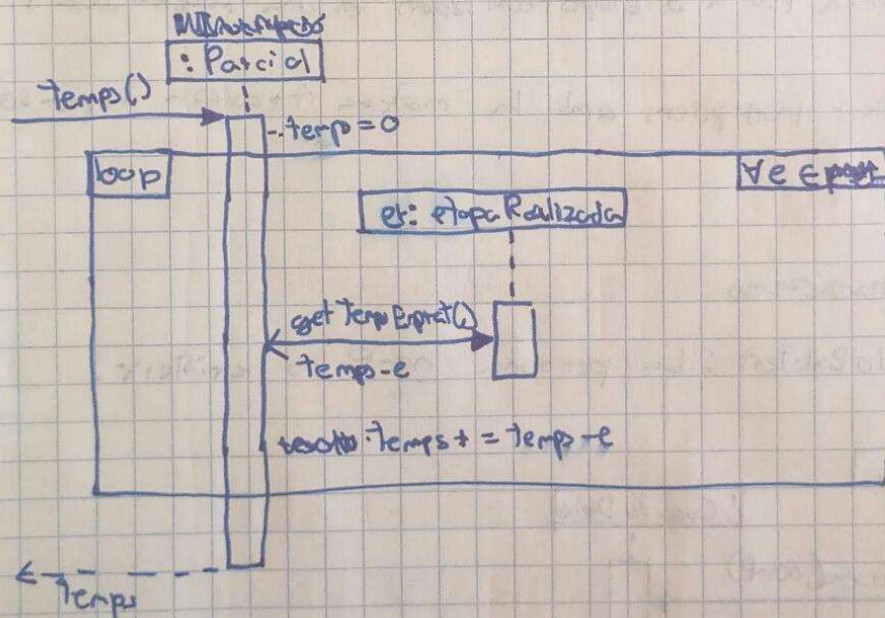 : Parcial
temps()
temp = 0
loop
∀e ∈
er: etapaRealizada
get Temp Emprat()
temps-e
temps + = temps-e
temps